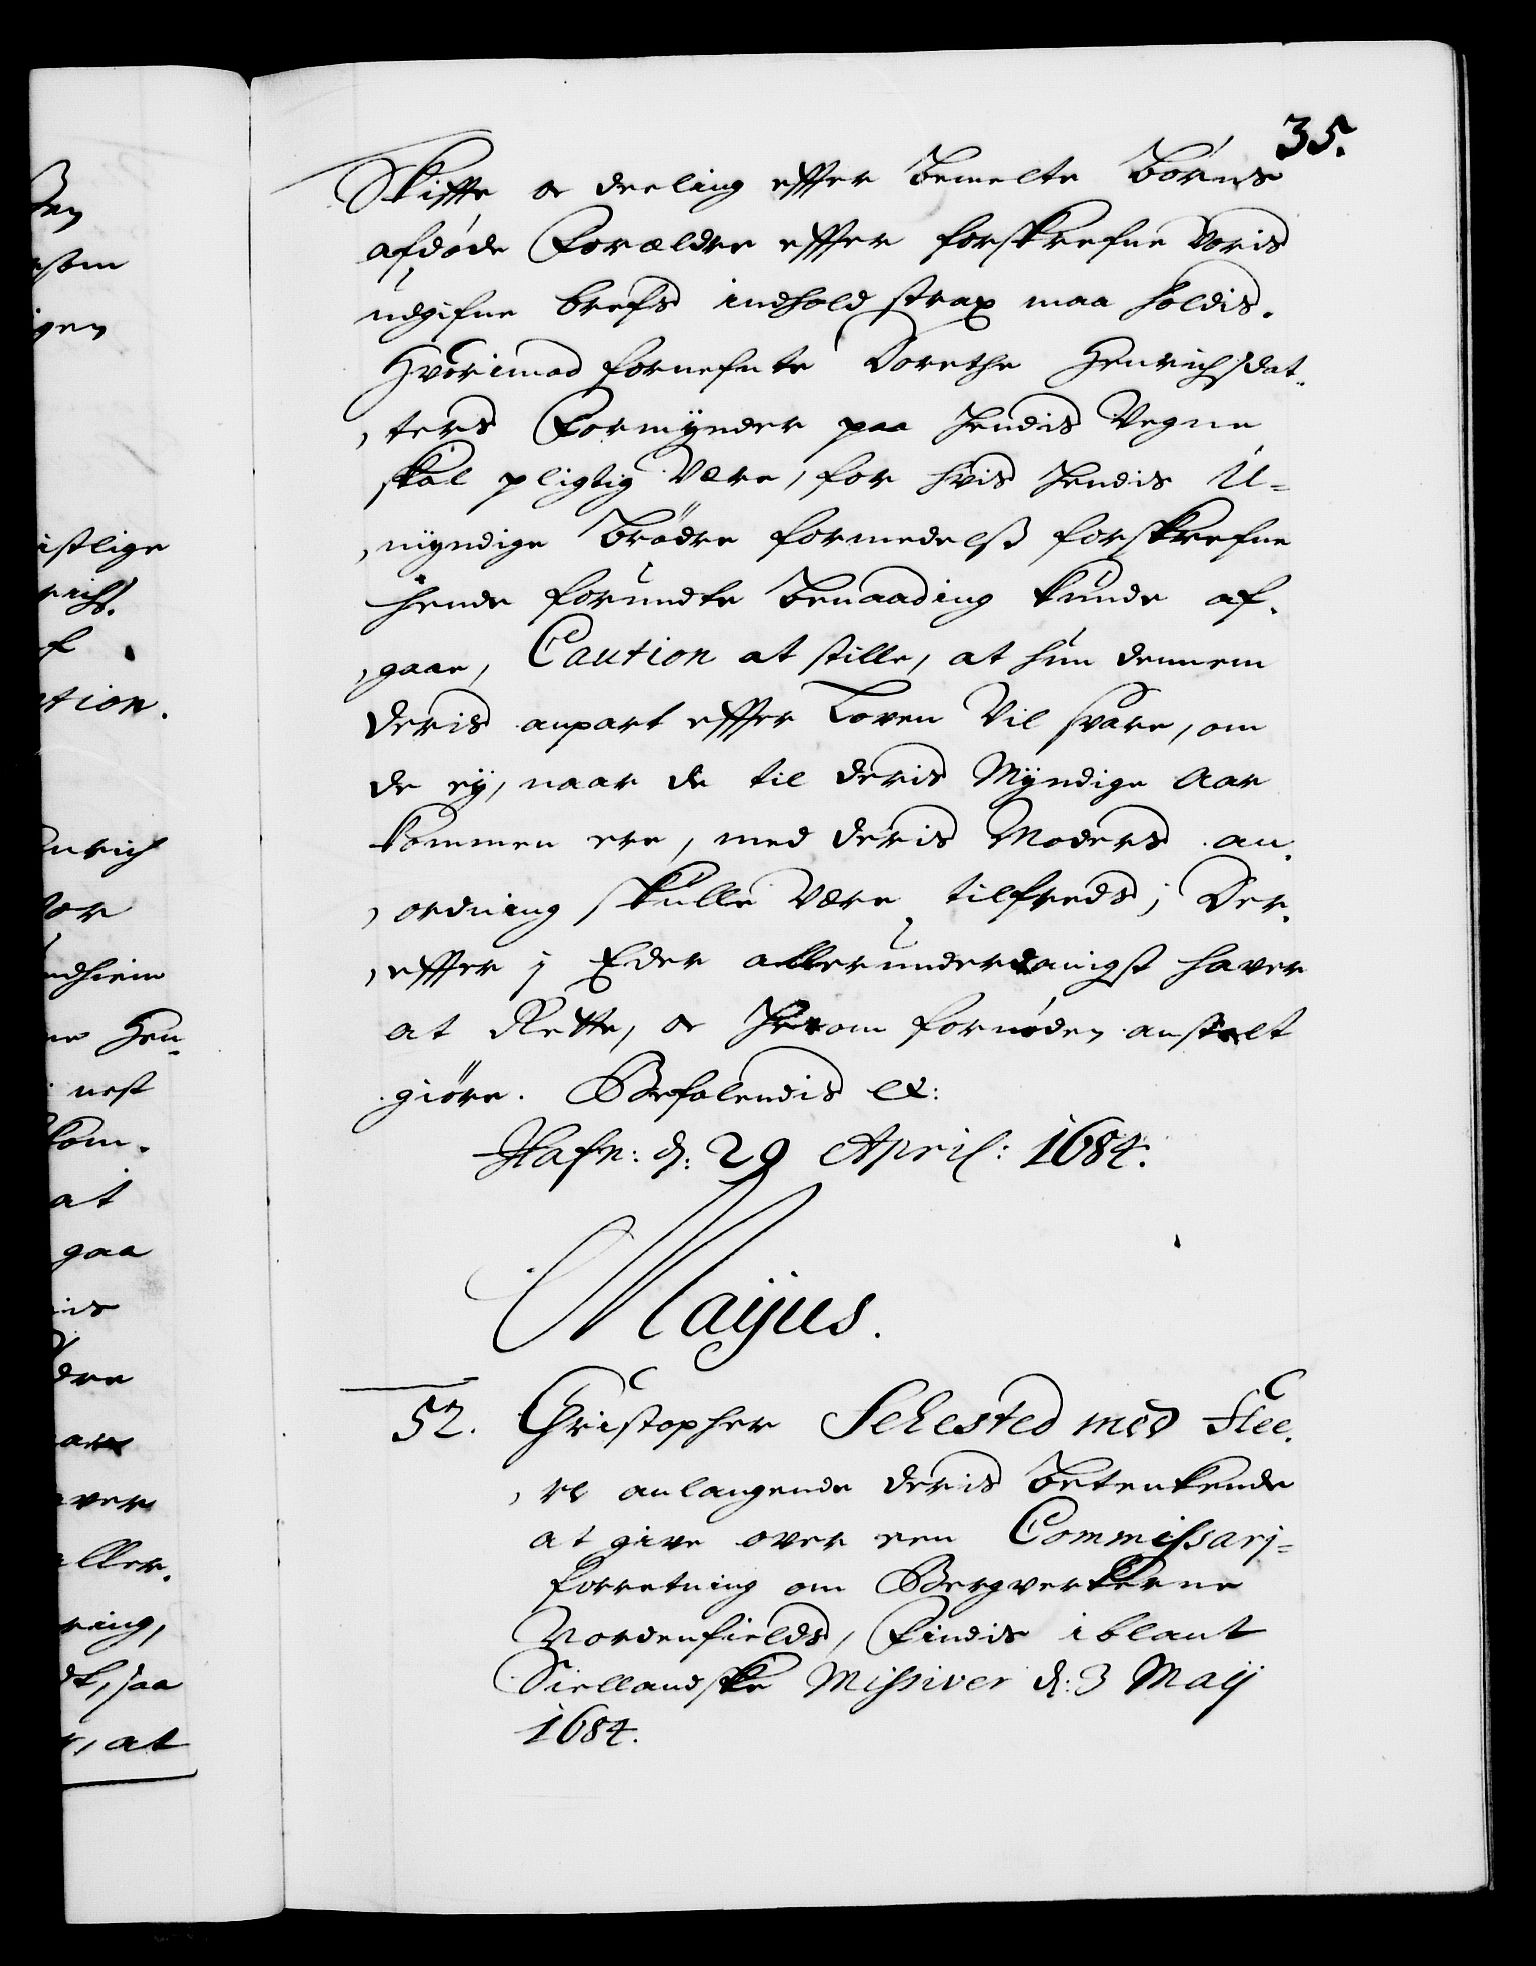 35.
Skiffte oc deeling effter bemelte Børns
afdøde Forældre effter forskrefne voris
udgifne brefs indhold strax maa holdis.
Hvorimod fornefnte Dorethe Henrichsdat-
ters Formynder paa hendis Vegne
skal pligtig være, for hvis hendis U-
myndige brödre formedelst forskrefne
hende forundte benaading kunde af-
gaae, Caution at stille, at hun dennem
deris anpart effter Loven vil svare, om
de ey, naar de til deris Myndige Aar
kommen ere, med deris Moders an-
ordning skulle være tilfreds; Der-
effter j Eder allerunderdanigst haver
at Rette, oc herom fornøden anstalt
giöre. Befalendis etc:
Hafn: d: 29 April: 1684.
Maijus.
52. Christopher Sehested med Flee-
re anlangende deris betenkende
at give over een Commissarj-
forretning om Bergverkerne
Nordenfields, Findis iblant
Siellandske Missiver d: 3 Maij
1684.
som
igen
istlige
tion.
enrich
nest
kom-
at
gaa
dre
aller-
ring,
saa
at